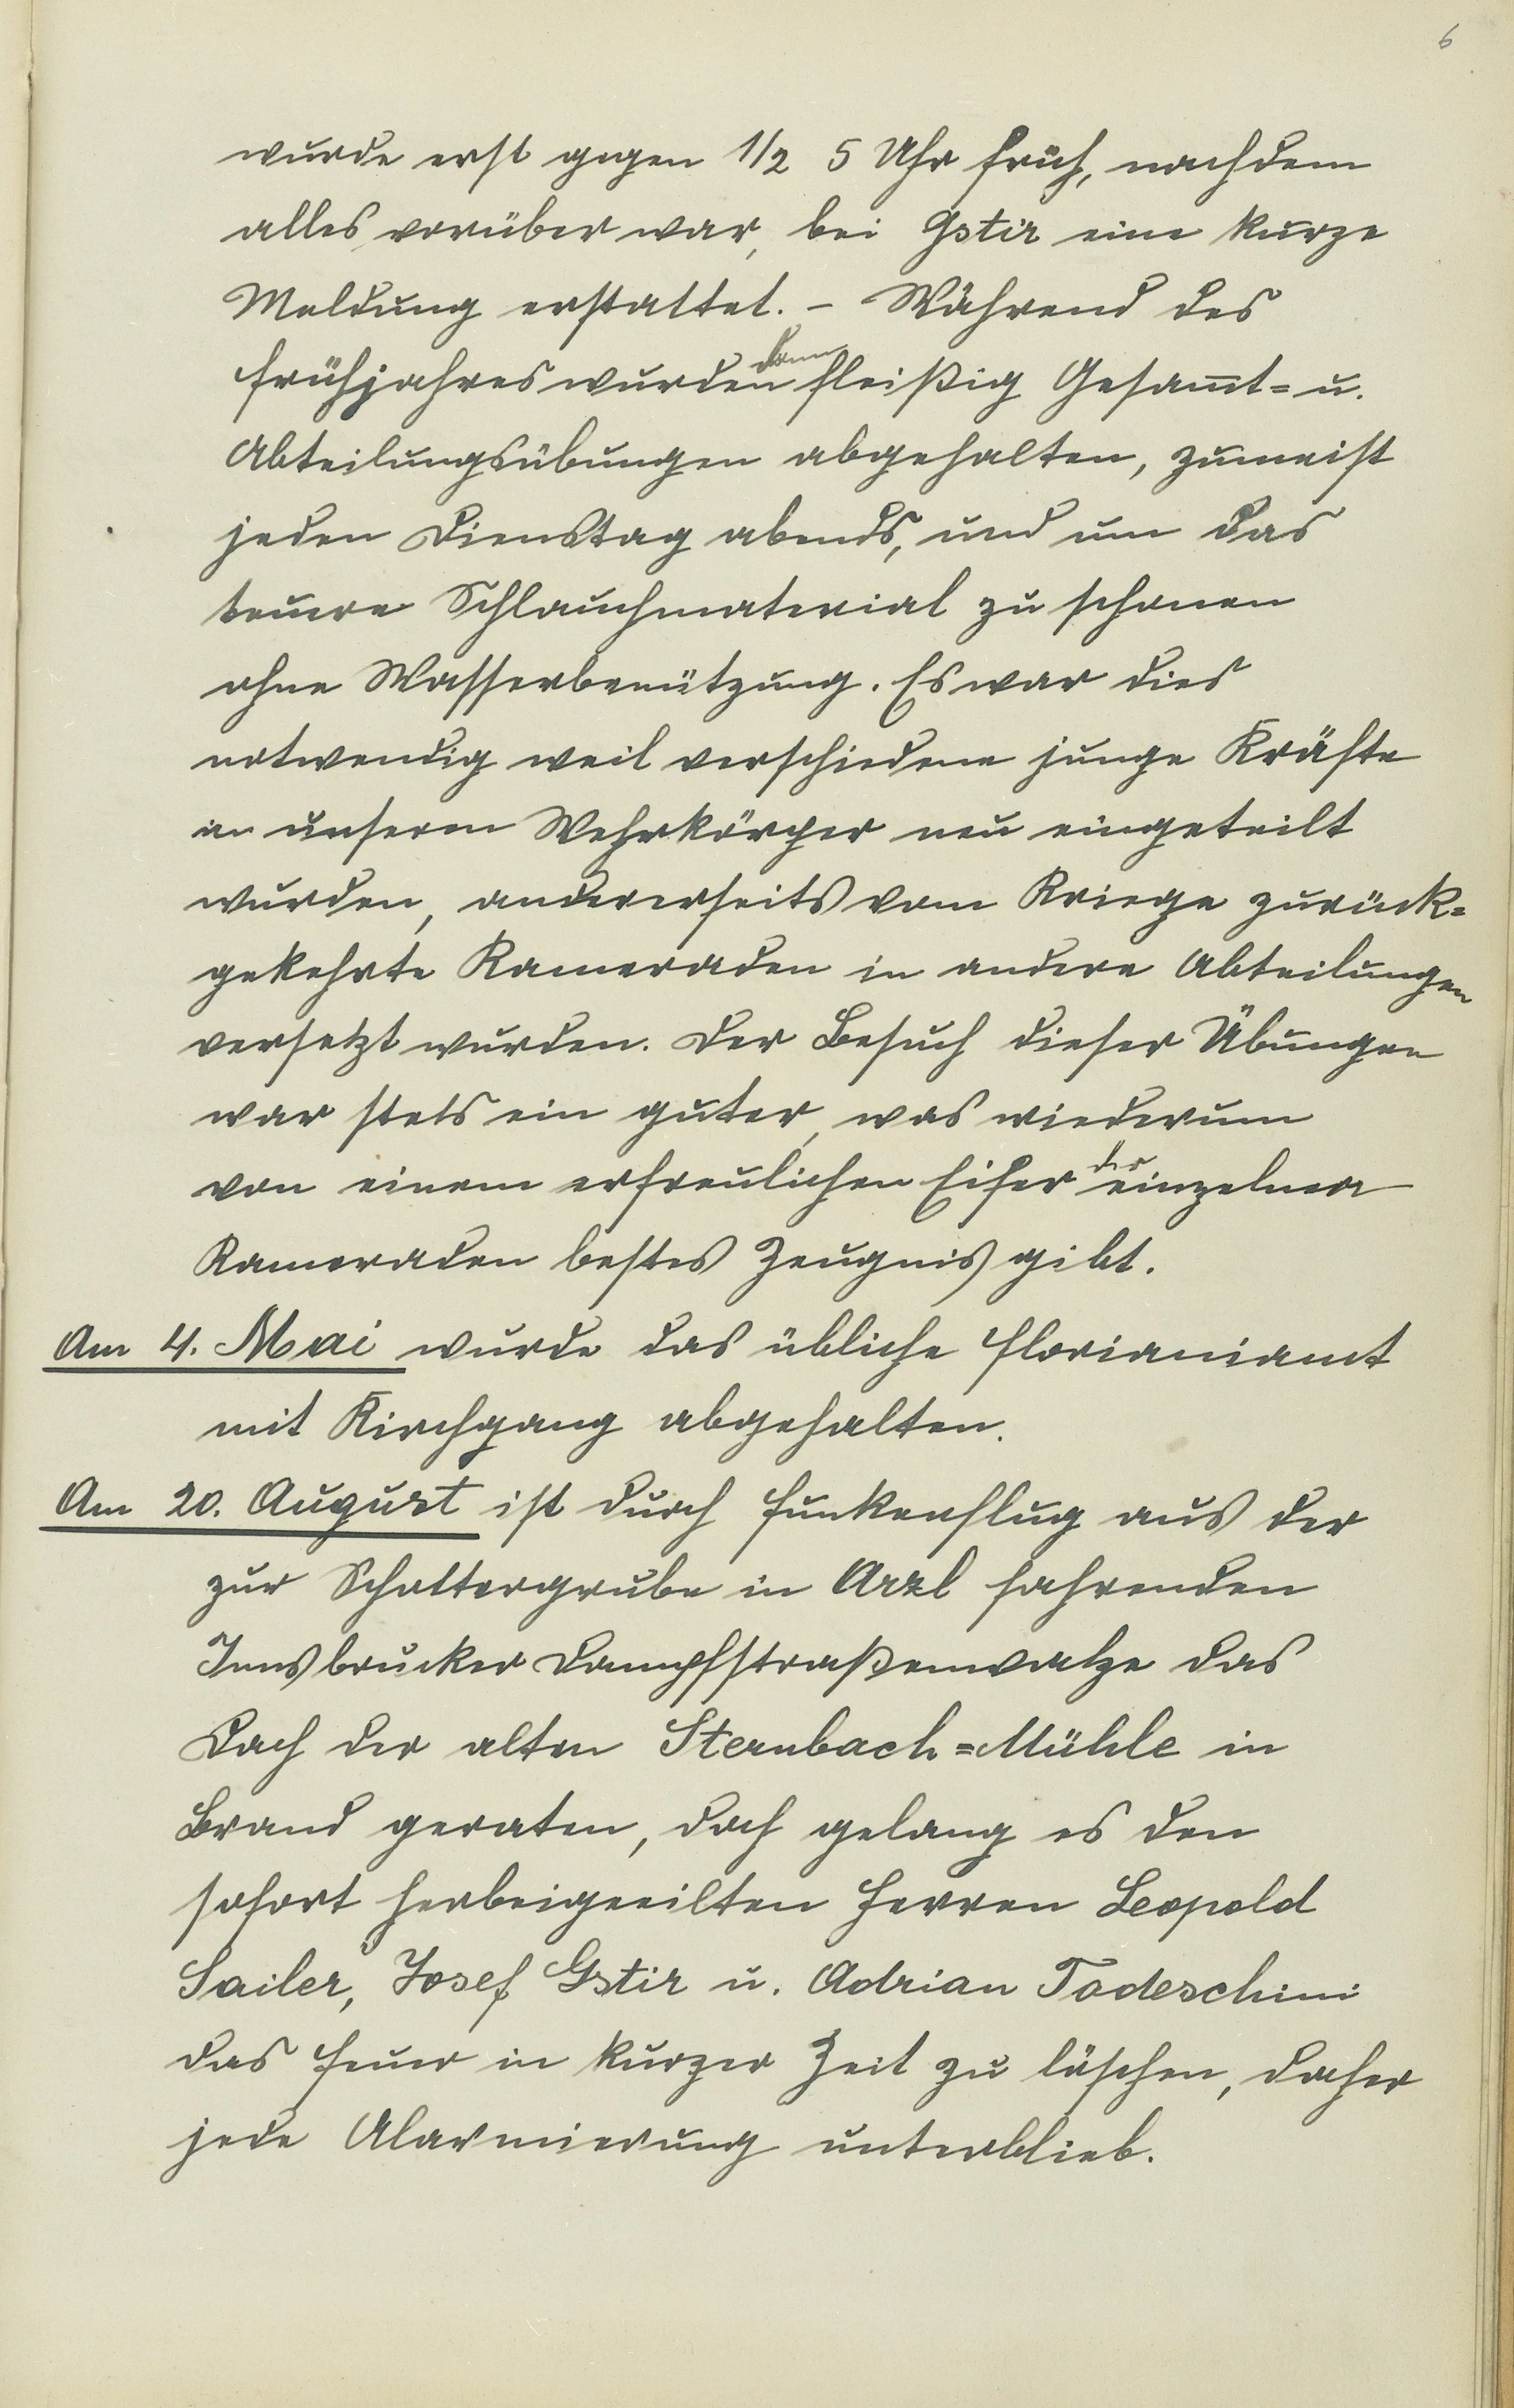 6
wurde erst gegen 1/2 5 Uhr früh, nachdem
alles vorüber war, bei Gstir eine kurze
Meldung erstattet. – Während des
Frühjahres wurden dann fleißig Gesam̄t= u.
Abteilungsübungen abgehalten, zumeist
jeden Dienstag abends, und um das
teuere Schlauchmaterial zu schonen
ohne Wasserbenützung. Es war dies
notwendig weil verschiedene junge Kräfte
in unserem Wehrkörper neu eingeteilt
wurden, andererseits vom Kriege zurück=
gekehrte Kameraden in andere Abteilungen
versetzt wurden. Der Besuch dieser Übungen
war stets ein guter, was wiederum
von einem erfreulichen Eifer der einzelner
Kameraden bestes Zeugnis gibt.
Am 4. Mai wurde das übliche Florianiamt
mit Kirchgang abgehalten.
Am 20. August ist durch Funkenflug aus der
zur Schottergrube in Arzl fahrenden
Innsbrucker Dampfstraßenwalze das
Dach der alten Sternbach=Mühle in
Brand geraten, doch gelang es den
sofort herbeigeeilten Herren Leopold
Sailer, Josef Gstir u. Adrian Todeschini
das Feuer in kurzer Zeit zu löschen, daher
jede Alarmierung unterblieb.